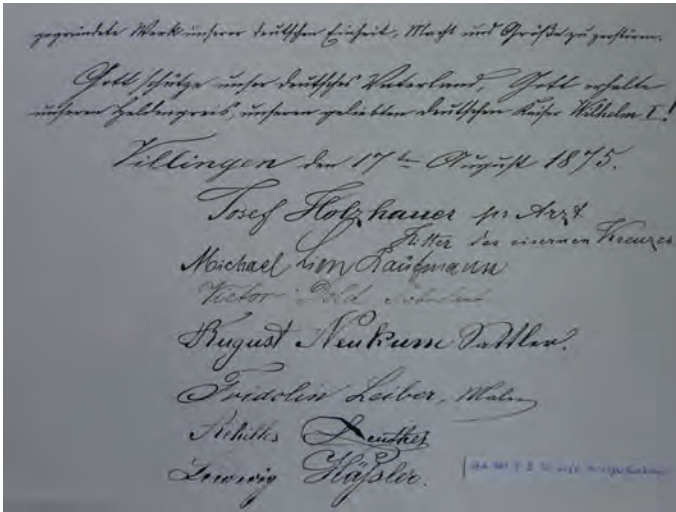 gegründete Werk unserer deutschen Einheit, Macht und Größe zu zerstören.
Gott schütze unser deutsches Vaterland, Gott erhalte
unseren Heldengreis, unseren geliebten deutschen Kaiser Wilhelm I!
Villingen den 17ten August 1875.
Josef Holzhauer pr. Arzt
Ritter des eisernen Kreuzes
Michael Kaufmann
Victor
August Neukum Sattler.
Fridolin Leiber, Maler
Achilles
Ludwig Häßler.